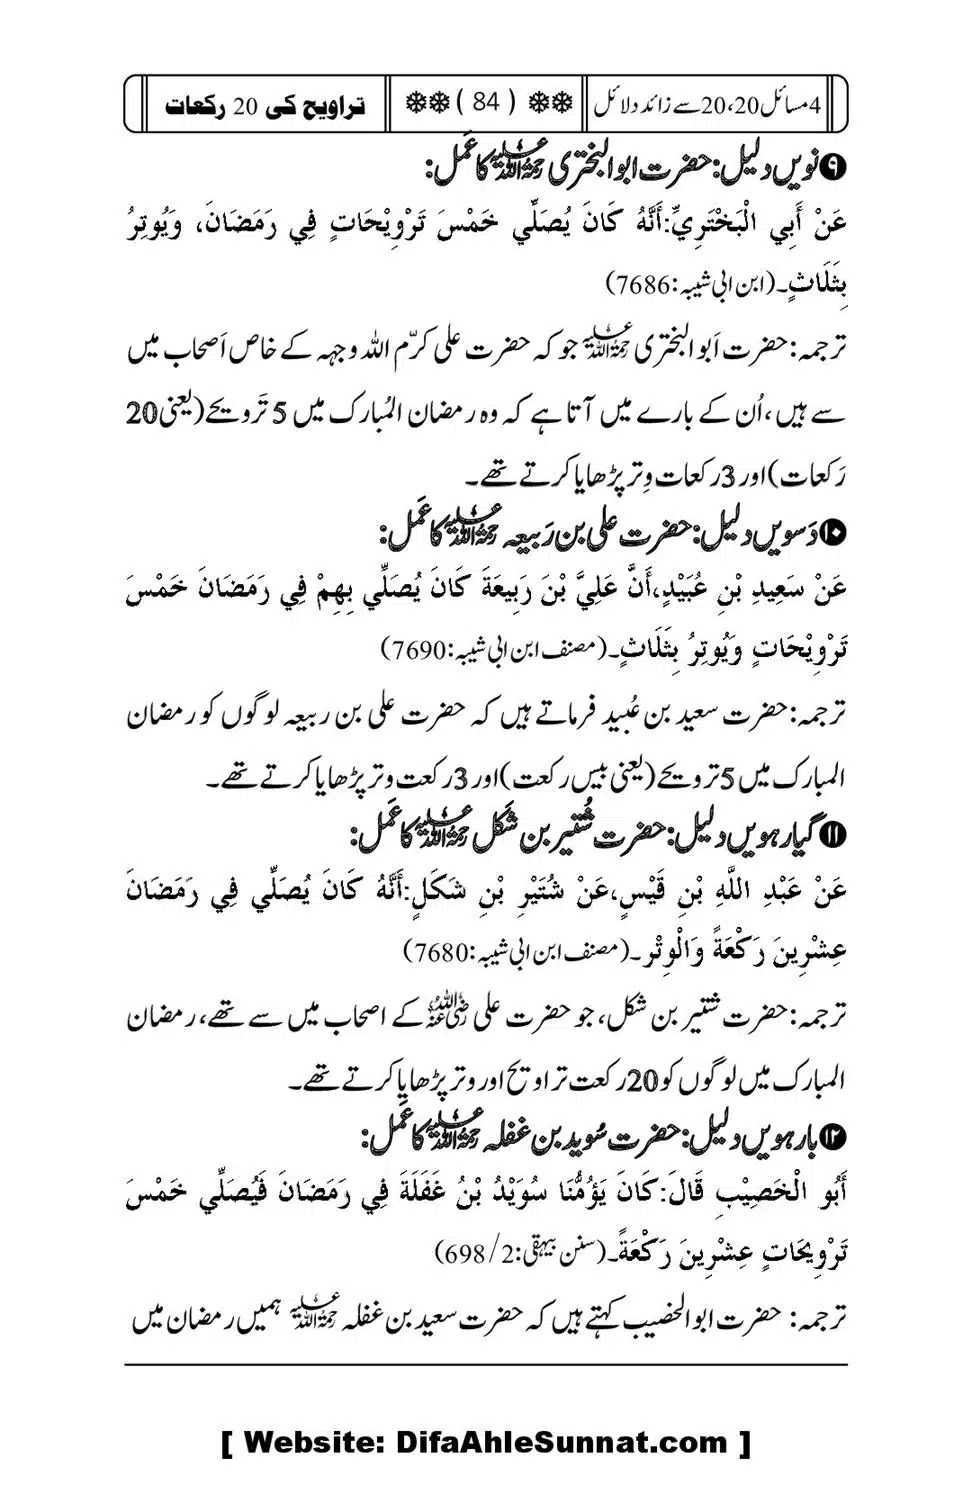 4مسائل 20،20سے زائد دلائل ❄❄ ( 84 ) ❄❄ تراویح کی 20 رکعات
❾نویں دلیل:حضرت ابو البختری رحمۃ اللہ علیہ کا عَمل:
عَنْ أَبِي الْبَخْتَرِيِّ:أَنَّهُ كَانَ يُصَلِّي خَمْسَ تَرْوِيْحَاتٍ فِي رَمَضَانَ، وَيُوتِرُ
بِثَلَاثٍ۔(ابن ابی شیبہ:7686)
ترجمہ:حضرت اَبو البختری رحمۃ اللہ علیہ جو کہ حضرت علی کرّم اللہ وجہہ کے خاص اَصحاب میں
سے ہیں،اُن کے بارے میں آتا ہے کہ وہ رمضان المُبارک میں 5 تَرویحے(یعنی 20
رَکعات)اور 3رکعات وِتر پڑھایا کرتے تھے۔
❿دَسویں دلیل:حضرت علی بن رَبیعہ رحمۃ اللہ علیہ کا عَمل:
عَنْ سَعِيدِ بْنِ عُبَيْدٍ،أَنَّ عَلِيَّ بْنَ رَبِيعَةَ كَانَ يُصَلِّي بِهِمْ فِي رَمَضَانَ خَمْسَ
تَرْوِيْحَاتٍ وَيُوتِرُ بِثَلَاثٍ۔(مصنف ابن ابی شیبہ:7690)
ترجمہ:حضرت سعید بن عُبید فرماتے ہیں کہ حضرت علی بن ربیعہ لوگوں کو رمضان
المبارک میں 5 ترویحے(یعنی بیس رکعت)اور 3رکعت وتر پڑھایا کرتے تھے۔
⓫گیارہویں دلیل:حضرت شُتیر بن شَکَل رحمۃ اللہ علیہ کا عَمل:
عَنْ عَبْدِ اللَّهِ بْنِ قَيْسٍ،عَنْ شُتَيْرِ بْنِ شَكَلٍ:أَنَّهُ كَانَ يُصَلِّي فِي رَمَضَانَ
عِشْرِينَ رَكْعَةً وَالْوِتْر۔(مصنف ابن ابی شیبہ:7680)
ترجمہ:حضرت شتیر بن شکل، جو حضرت علی رضی اللہ عنہ کے اصحاب میں سے تھے،رمضان
المبارک میں لوگوں کو 20رکعت تراویح اور وتر پڑھایا کرتے تھے۔
⓬بارہویں دلیل:حضرت سُوید بن غفلہ رحمۃ اللہ علیہ کا عَمل:
أَبُو الْخَصِيْبِ قَالَ:كَانَ يَؤُمُّنَا سُوَيْدُ بْنُ غَفَلَةَ فِي رَمَضَانَ فَيُصَلِّي خَمْسَ
تَرْوِيحَاتٍ عِشْرِينَ رَكْعَةً۔(سنن بیہقی:698/2)
ترجمہ: حضرت ابو الخضیب کہتے ہیں کہ حضرت سعید بن غفلہ رحمۃ اللہ علیہ ہمیں رمضان میں
[ Website: DifaAhleSunnat.com ]